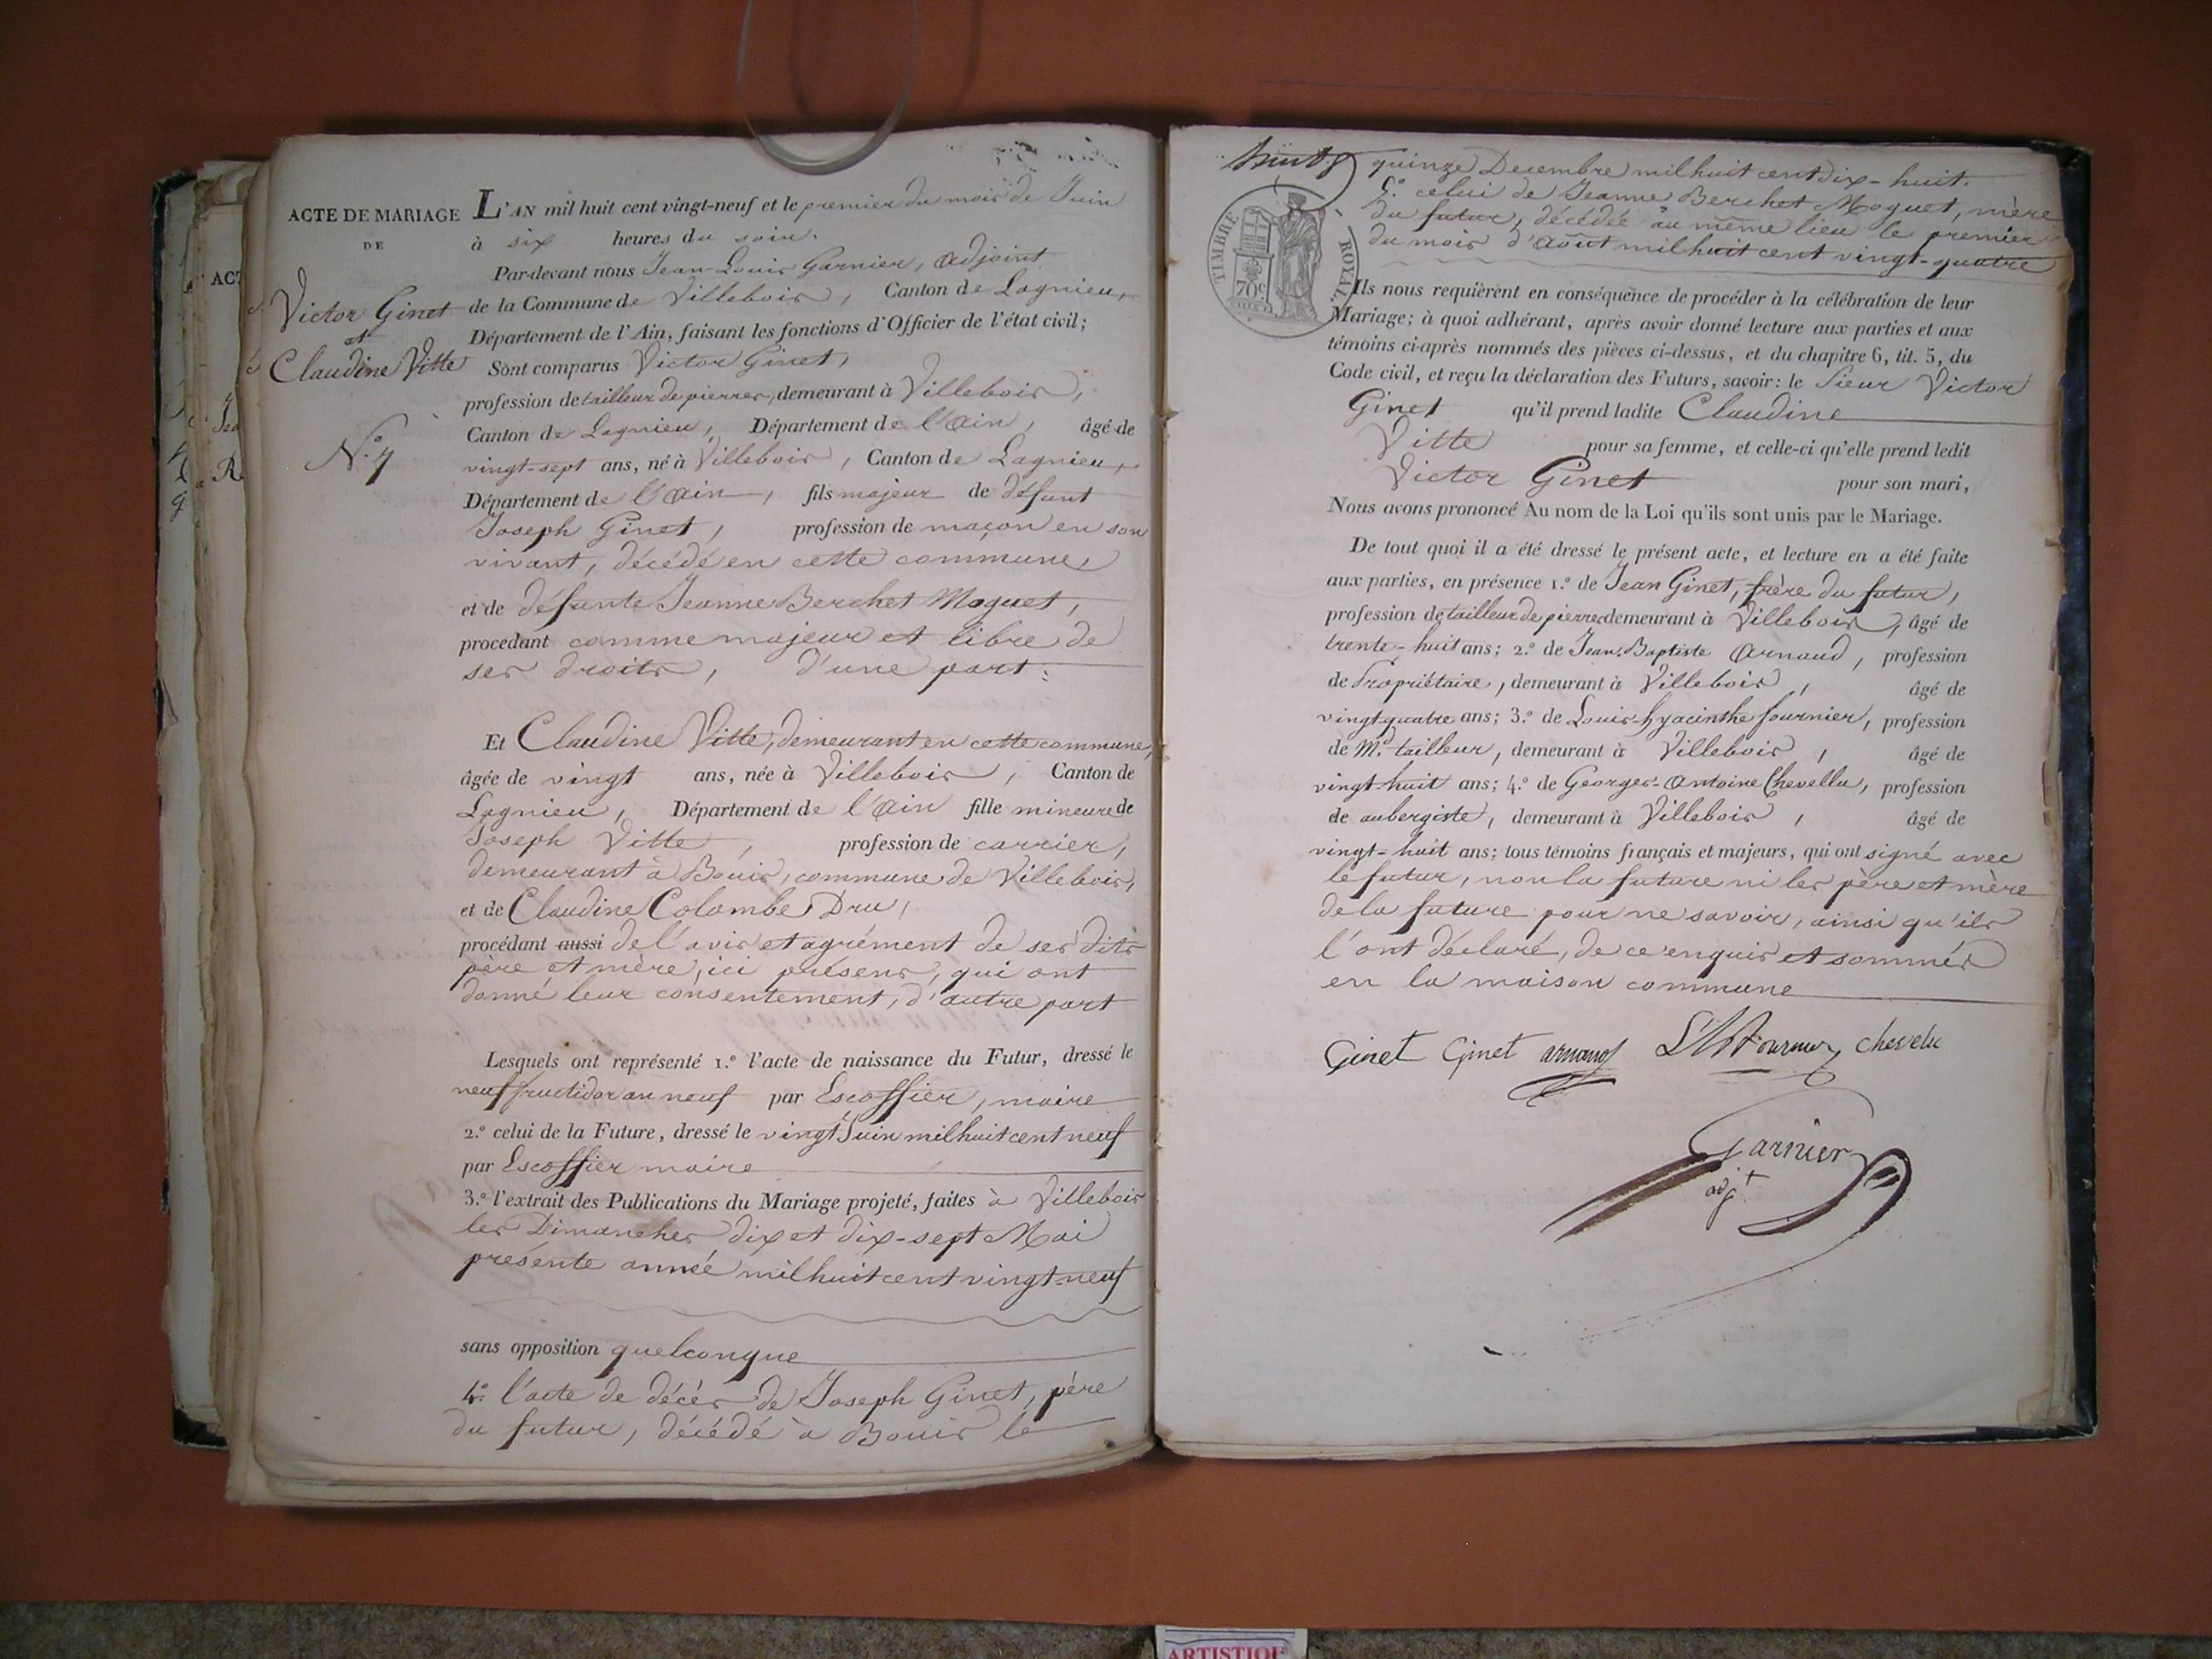 ACTE DE MARIAGE
DE
Victor Ginet
et
Claudine Vitte
N.º 7
L'AN mil huit cent vingt-neuf et le premier du mois de Juin
à six heures du soir.
Par-devant nous Jean-Louis Garnier, adjoint
de la Commune de Villebois, Canton de Lagnieu,
Département de l'Ain, faisant les fonctions d'Officier de l'état civil;
Sont comparus Victor Ginet,
profession de tailleur de pierres, demeurant à Villebois,
Canton de Lagnieu, Département de l'Ain, âgé de
vingt-sept ans, né à Villebois, Canton de Lagnieu,
Département de l'Ain, fils majeur de défunt
Joseph Ginet, profession de maçon en son
vivant, décédé en cette commune,
et de défunte Jeanne Berchet Moguet,
procédant comme majeur et libre de
ses droits, d'une part:
Et Claudine Vitte, demeurant en cette commune,
âgée de vingt ans, née à Villebois, Canton de
Lagnieu, Département de l'Ain fille mineure de
Joseph Vitte, profession de carrier,
demeurant à Bouis, commune de Villebois,
et de Claudine Colombe Dru,
procédant aussi de l'avis et agrément de ses dits
père et mère, ici présens, qui ont
donné leur consentement, d'autre part
Lesquels ont représenté 1.º l'acte de naissance du Futur, dressé le
neuf fructidor an neuf par Escoffier, maire
2.º celui de la Future, dressé le vingt Juin mil huit cent neuf
par Escoffier maire
3.º l'extrait des Publications du Mariage projeté, faites à Villebois
les Dimanches dix et dix-sept Mai
présente année mil huit cent vingt-neuf
sans opposition quelconque
4.º l'acte de décès de Joseph Ginet, père
du futur, décédé à Bouis le
huit
quinze Decembre mil huit cent dix-huit.
5.º celui de Jeanne Berchet Moguet, mère
du futur, décédée au même lieu le premier
du mois d'août mil huit cent vingt-quatre
TIMBRE ROYAL
70c
Ils nous requièrent en conséquence de procéder à la célébration de leur
Mariage; à quoi adhérant, après avoir donné lecture aux parties et aux
témoins ci-après nommés des pièces ci-dessus, et du chapitre 6, tit. 5, du
Code civil, et reçu la déclaration des Futurs, savoir: le Sieur Victor
Ginet qu'il prend ladite Claudine
Vitte pour sa femme, et celle-ci qu'elle prend ledit
Victor Ginet pour son mari,
Nous avons prononcé Au nom de la Loi qu'ils sont unis par le Mariage.
De tout quoi il a été dressé le présent acte, et lecture en a été faite
aux parties, en présence 1.º de Jean Ginet, frère du futur,
profession de tailleur de pierres demeurant à Villebois, âgé de
trente-huit ans; 2.º de Jean-Baptiste Arnaud, profession
de Propriétaire, demeurant à Villebois, âgé de
vingt quatre ans; 3.º de Louis-hyacinthe fournier, profession
de Md. tailleur, demeurant à Villebois, âgé de
vingt-huit ans; 4.º de Georges-Antoine Chevellu, profession
de aubergiste, demeurant à Villebois, âgé de
vingt-huit ans; tous témoins français et majeurs, qui ont signé avec
le futur, non la future ni les père et mère
de la future pour ne savoir, ainsi qu'ils
l'ont déclaré, de ce enquis et sommés
en la maison commune
Ginet Ginet arnaud L H Fournier chevelu
Garnier
adjt
ACT
ARTISTIQUE